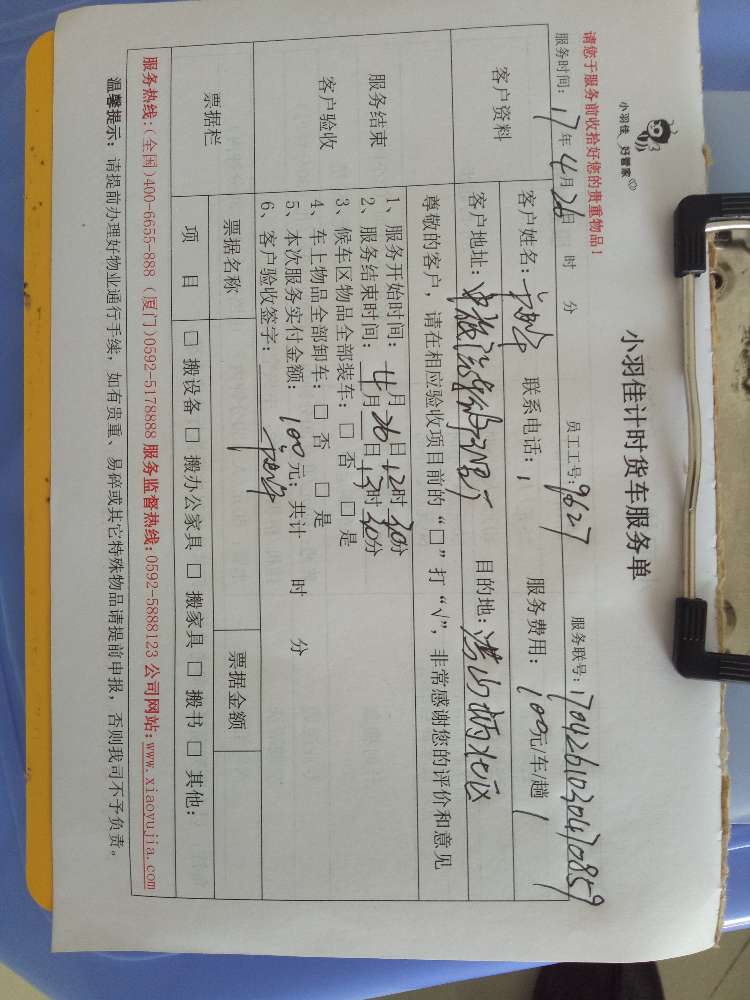 小羽佳 好管家
小羽佳计时货车服务单
请您于服务前收拾好您的贵重物品！
服务时间：17年4月26日 时 分 员工工号：9627 服务联号：1704261030470859
客户资料
客户姓名： 联系电话：1 服务费用：100元/车/趟 1
客户地址： 目的地：
服务结束
客户验收
尊敬的客户，请在相应验收项目前的“□”打“√”，非常感谢您的评价和意见
1、服务开始时间：4月26日12时30分
2、服务结束时间：4月26日13时30分
3、候车区物品全部装车：□ 否 □ 是
4、车上物品全部卸车：□ 否 □ 是
5、本次服务实付金额：100元；共计 时 分
6、客户验收签字：
票据栏
票据名称 票据金额
项 目 □ 搬设备 □ 搬办公家具 □ 搬家具 □ 搬书 □ 其他：
服务热线：(全国)400-6655-888 (厦门)0592-5178888 服务监督热线：0592-5888123 公司网站：www.xiaoyujia.com
温馨提示：请提前办理好物业通行手续，如有贵重、易碎或其它特殊物品请提前申报，否则我司不予负责。